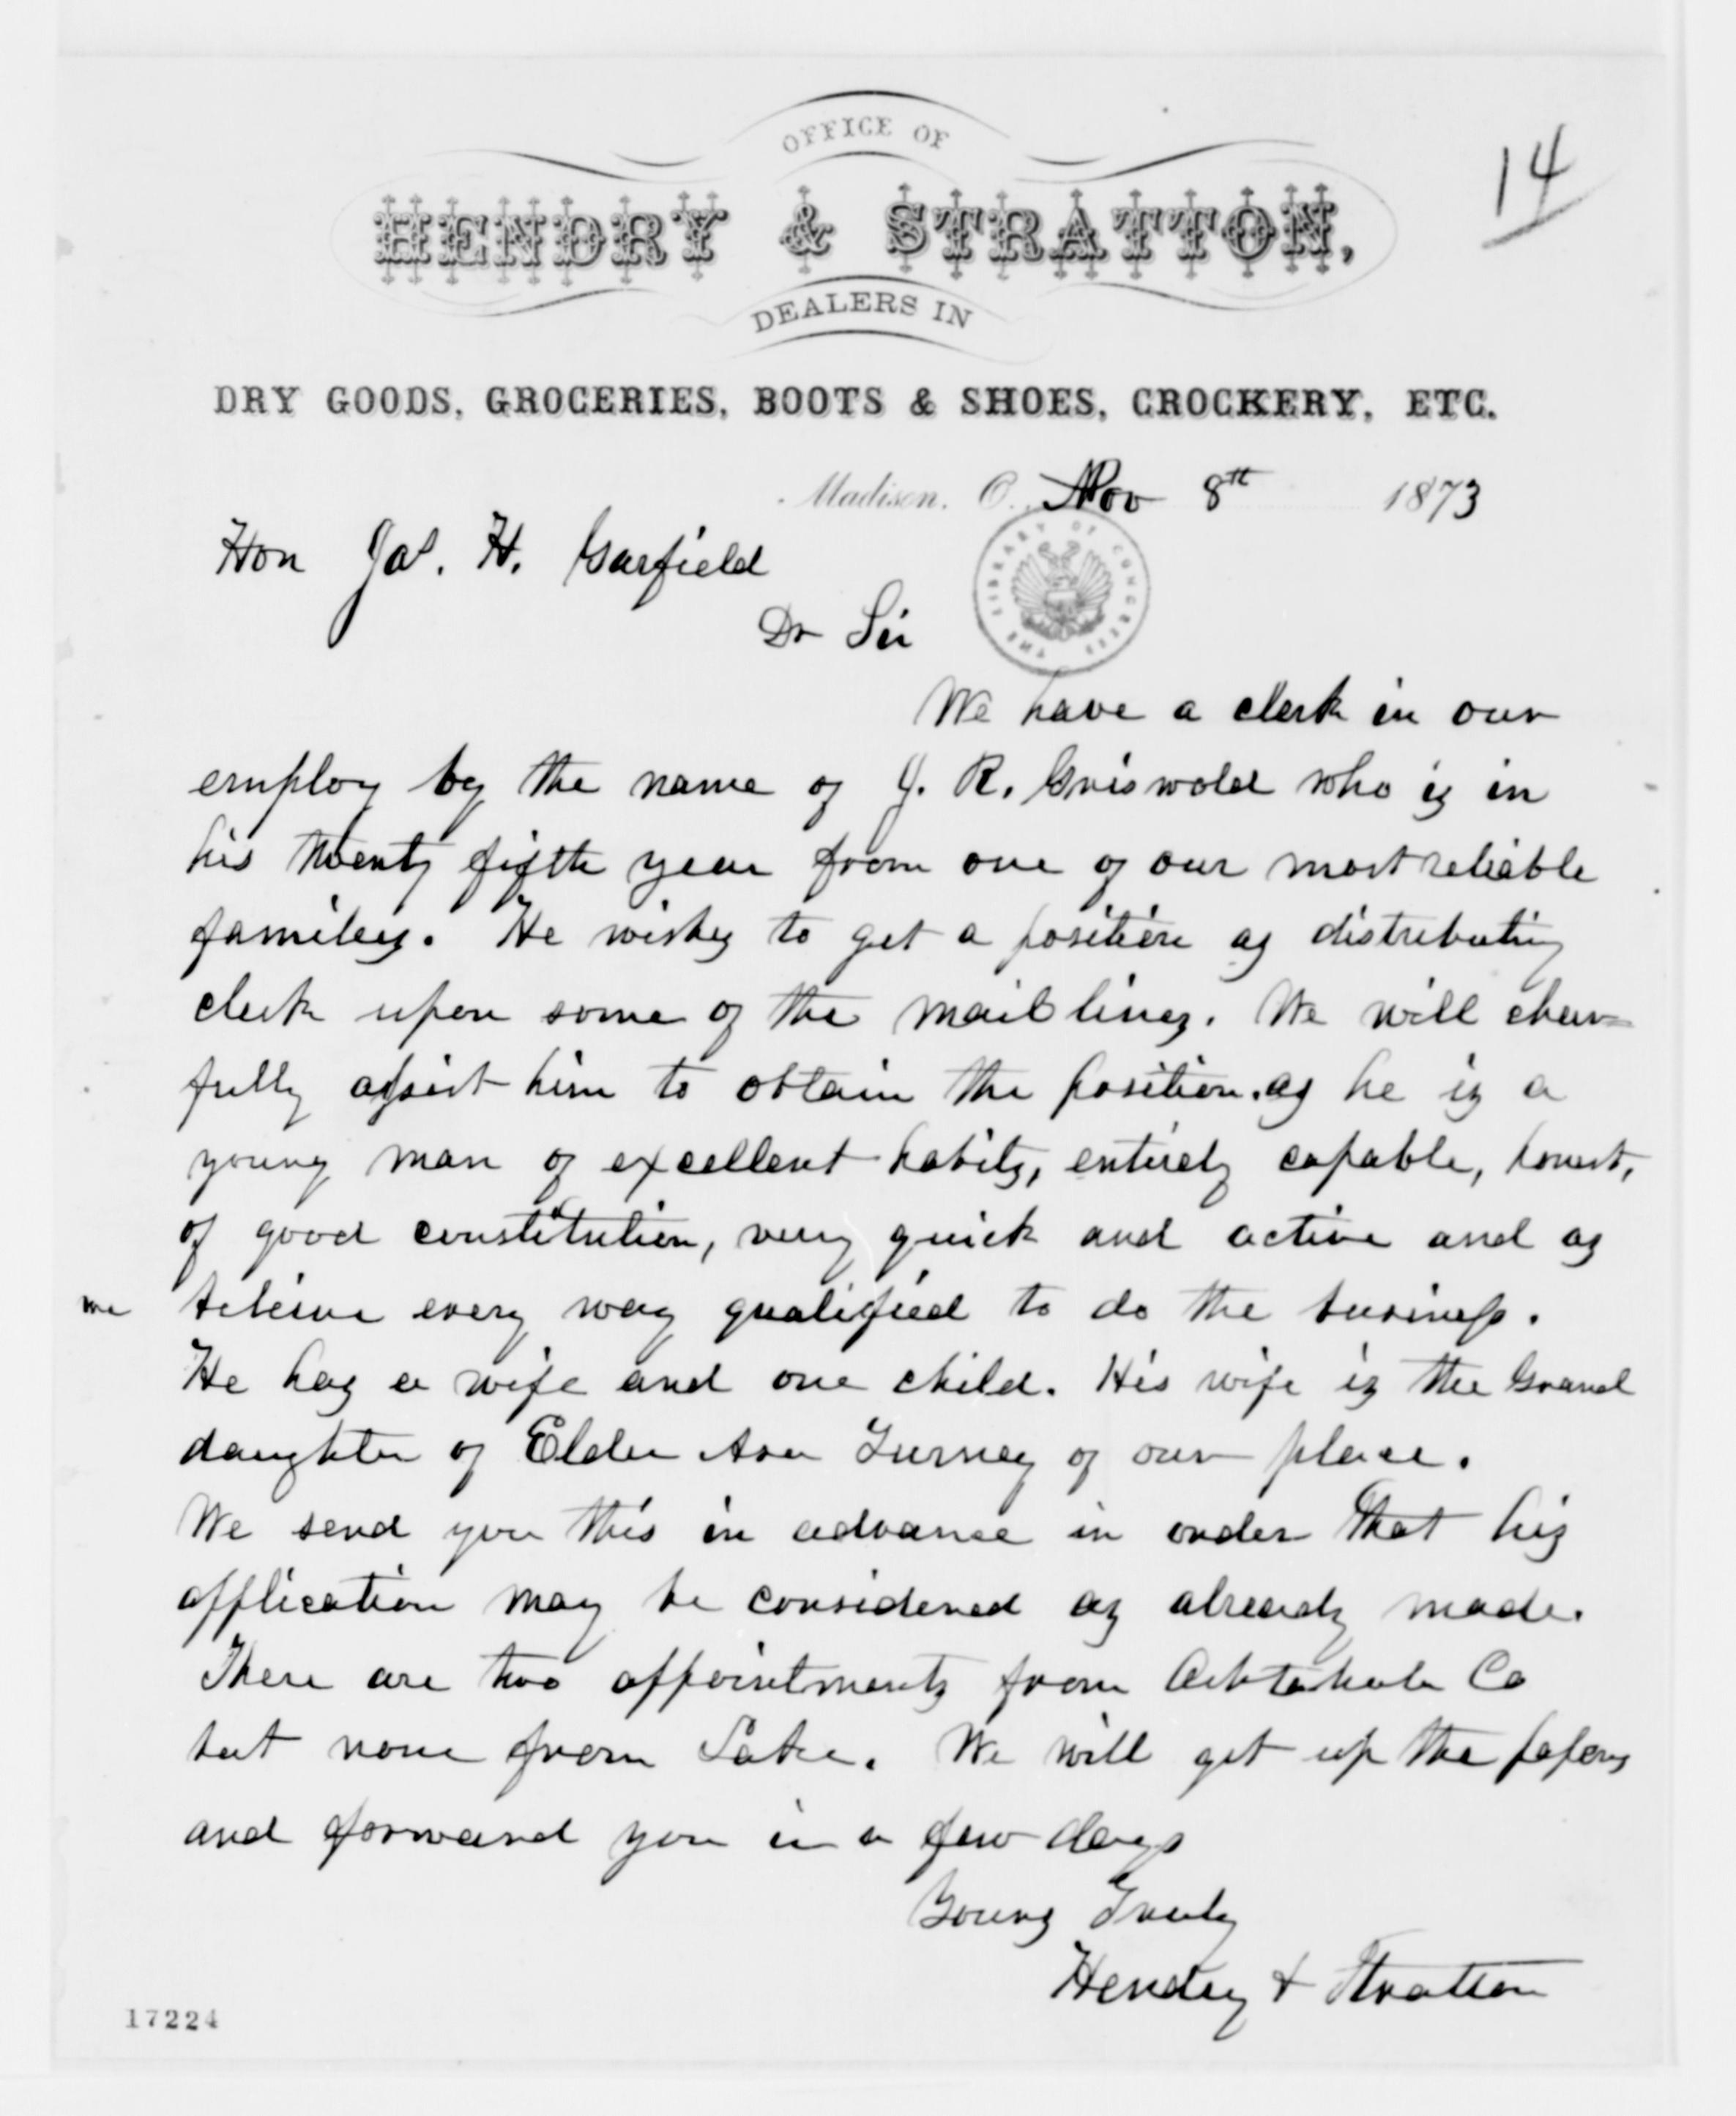 OFFICE OF
14
HENDRY & STRATTON,
DEALERS IN
DRY GOODS, GROCERIES, BOOTS & SHOES, CROCKERY, ETC.
Madison, O. Nov 8th 1873
Hon Jas. H. Garfield
Dr Sir
THE LIBRARY OF CONGRESS
We have a clerk in our
employ by the name of J. R. Griswold who is in
his twenty fifth year from one of our most reliable
families. He wishes to get a position as distributing
clerk upon some of the mail lines. We will cheer=
fully assist him to obtain the position. as he is a
young man of excellent habits, entirely capable, honest,
of good constitution, very quick and active and as
we believe every way qualified to do the business.
He has a wife and one child. His wife is the Grand
daughter of Elder Asa Turney of our place.
We send you this in advance in order that his
application may be considered as already made.
There are two appointments from Ashtabula Co
but none from Lake. We will get up the papers
and forward you in a few days
Yours Truly
Hendry & Stratton
17224